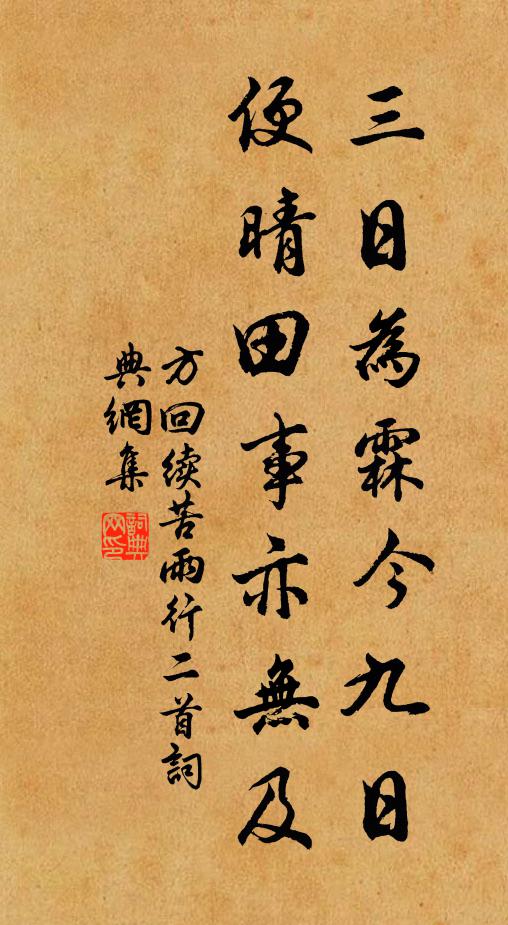 三日為霖今九日
便晴田事亦無及
方回续苦雨行二首詞
典網集
詞典网印